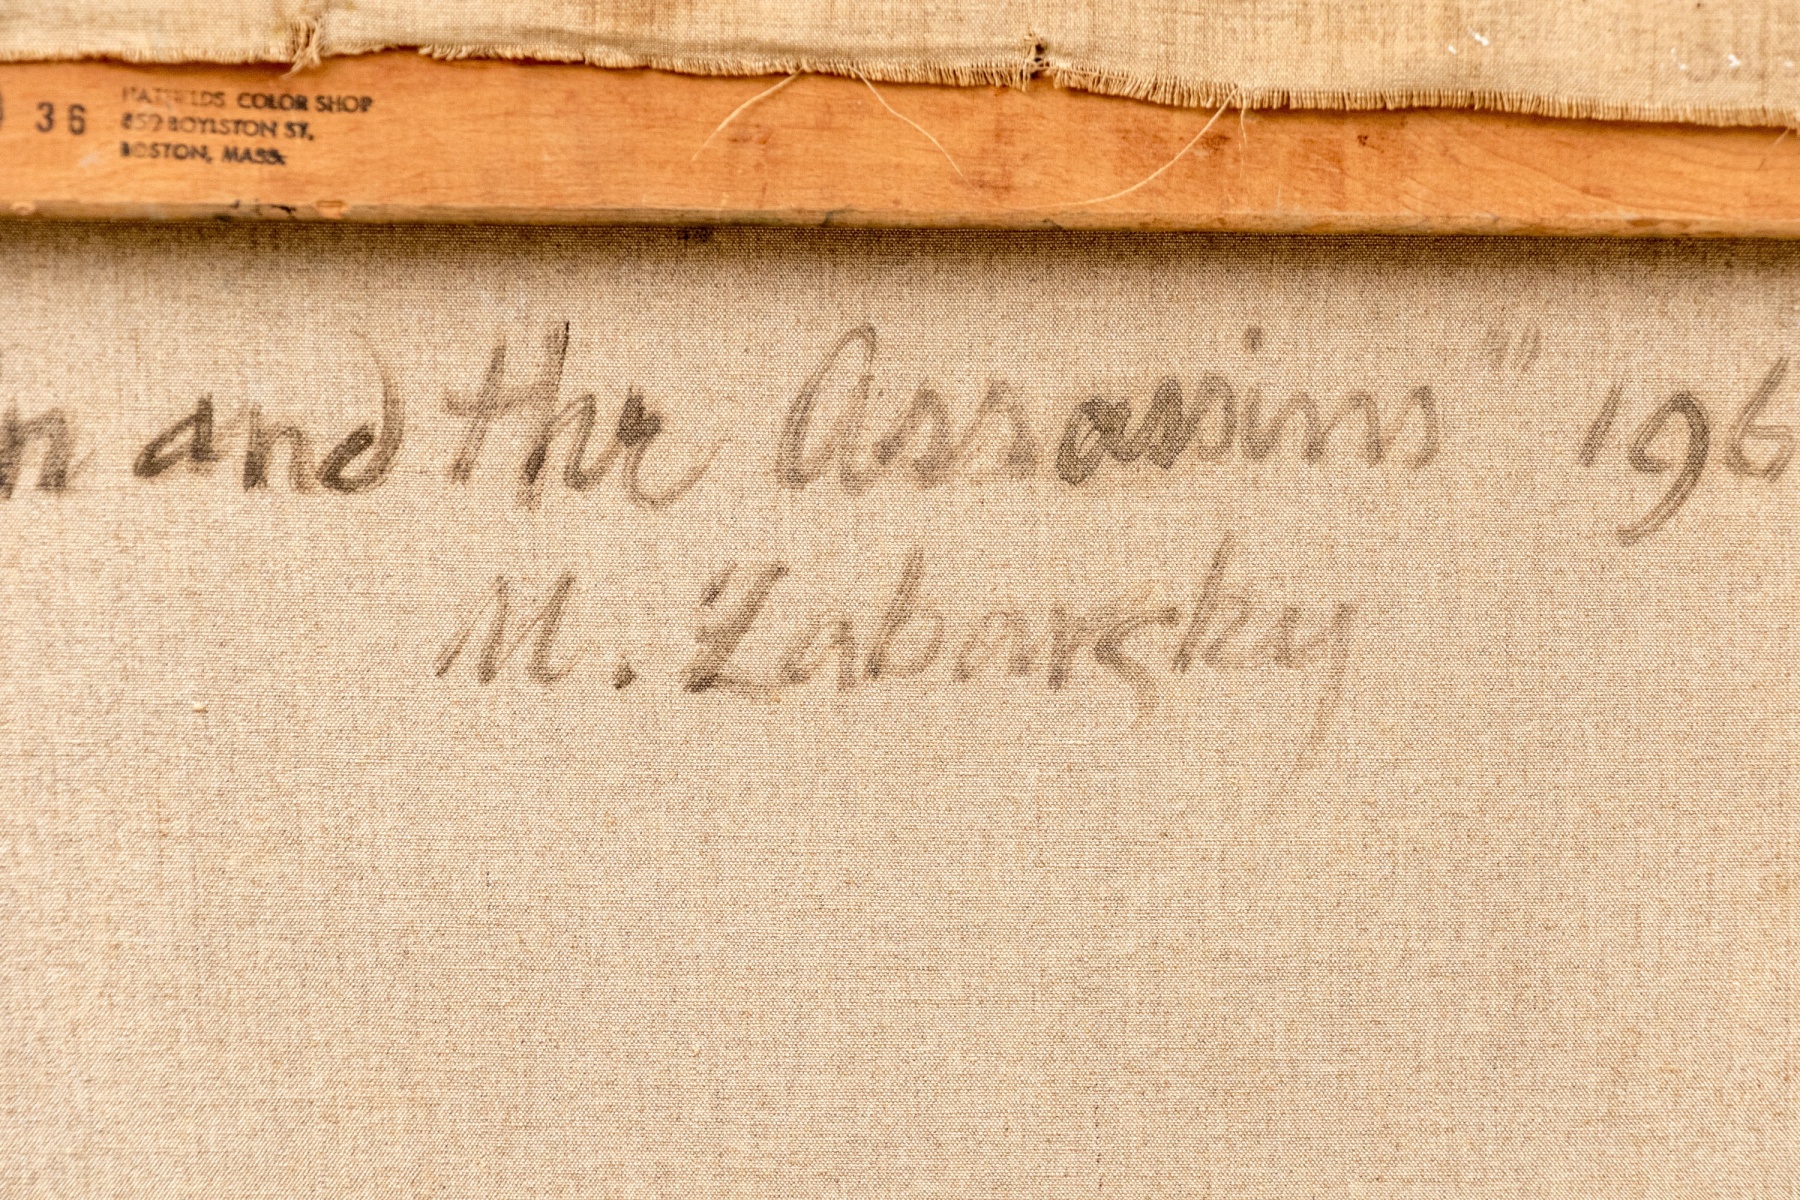 36
HATFIELDS COLOR SHOP
859 BOYLSTON ST.
BOSTON, MASS.
n and the Assassins" 196
M. Zabarsky